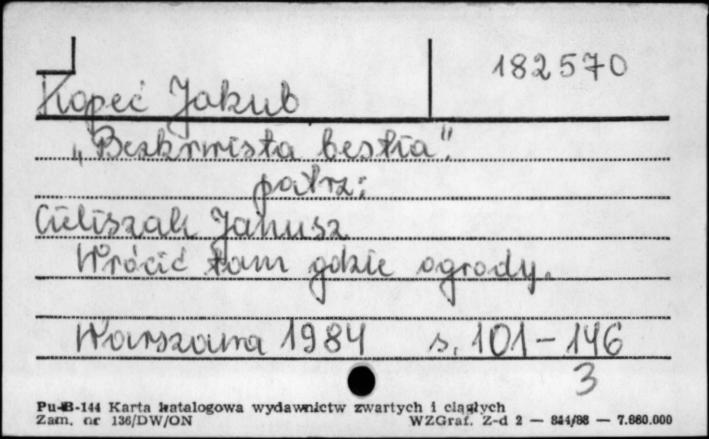 182570
Kopeć Jakub
„Bezkrwista bestia".
patrz:
Cieliszak Janusz
Wrócić tam gdzie ogrody.
Warszawa 1984 s. 101-146
3
Pu-B-144 Karta katalogowa wydawnictw zwartych i ciągłych
Zam. nr 136/DW/ON WZGraf. Z-d 2 — 844/88 — 7.660.000